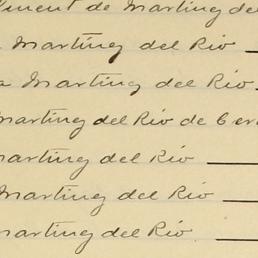 de Martinez del
Martinez del Rio
a Martinez del Rio
Martinez del Rio de Cer
Martinez del Rio
Martinez del Rio
Martinez del Rio